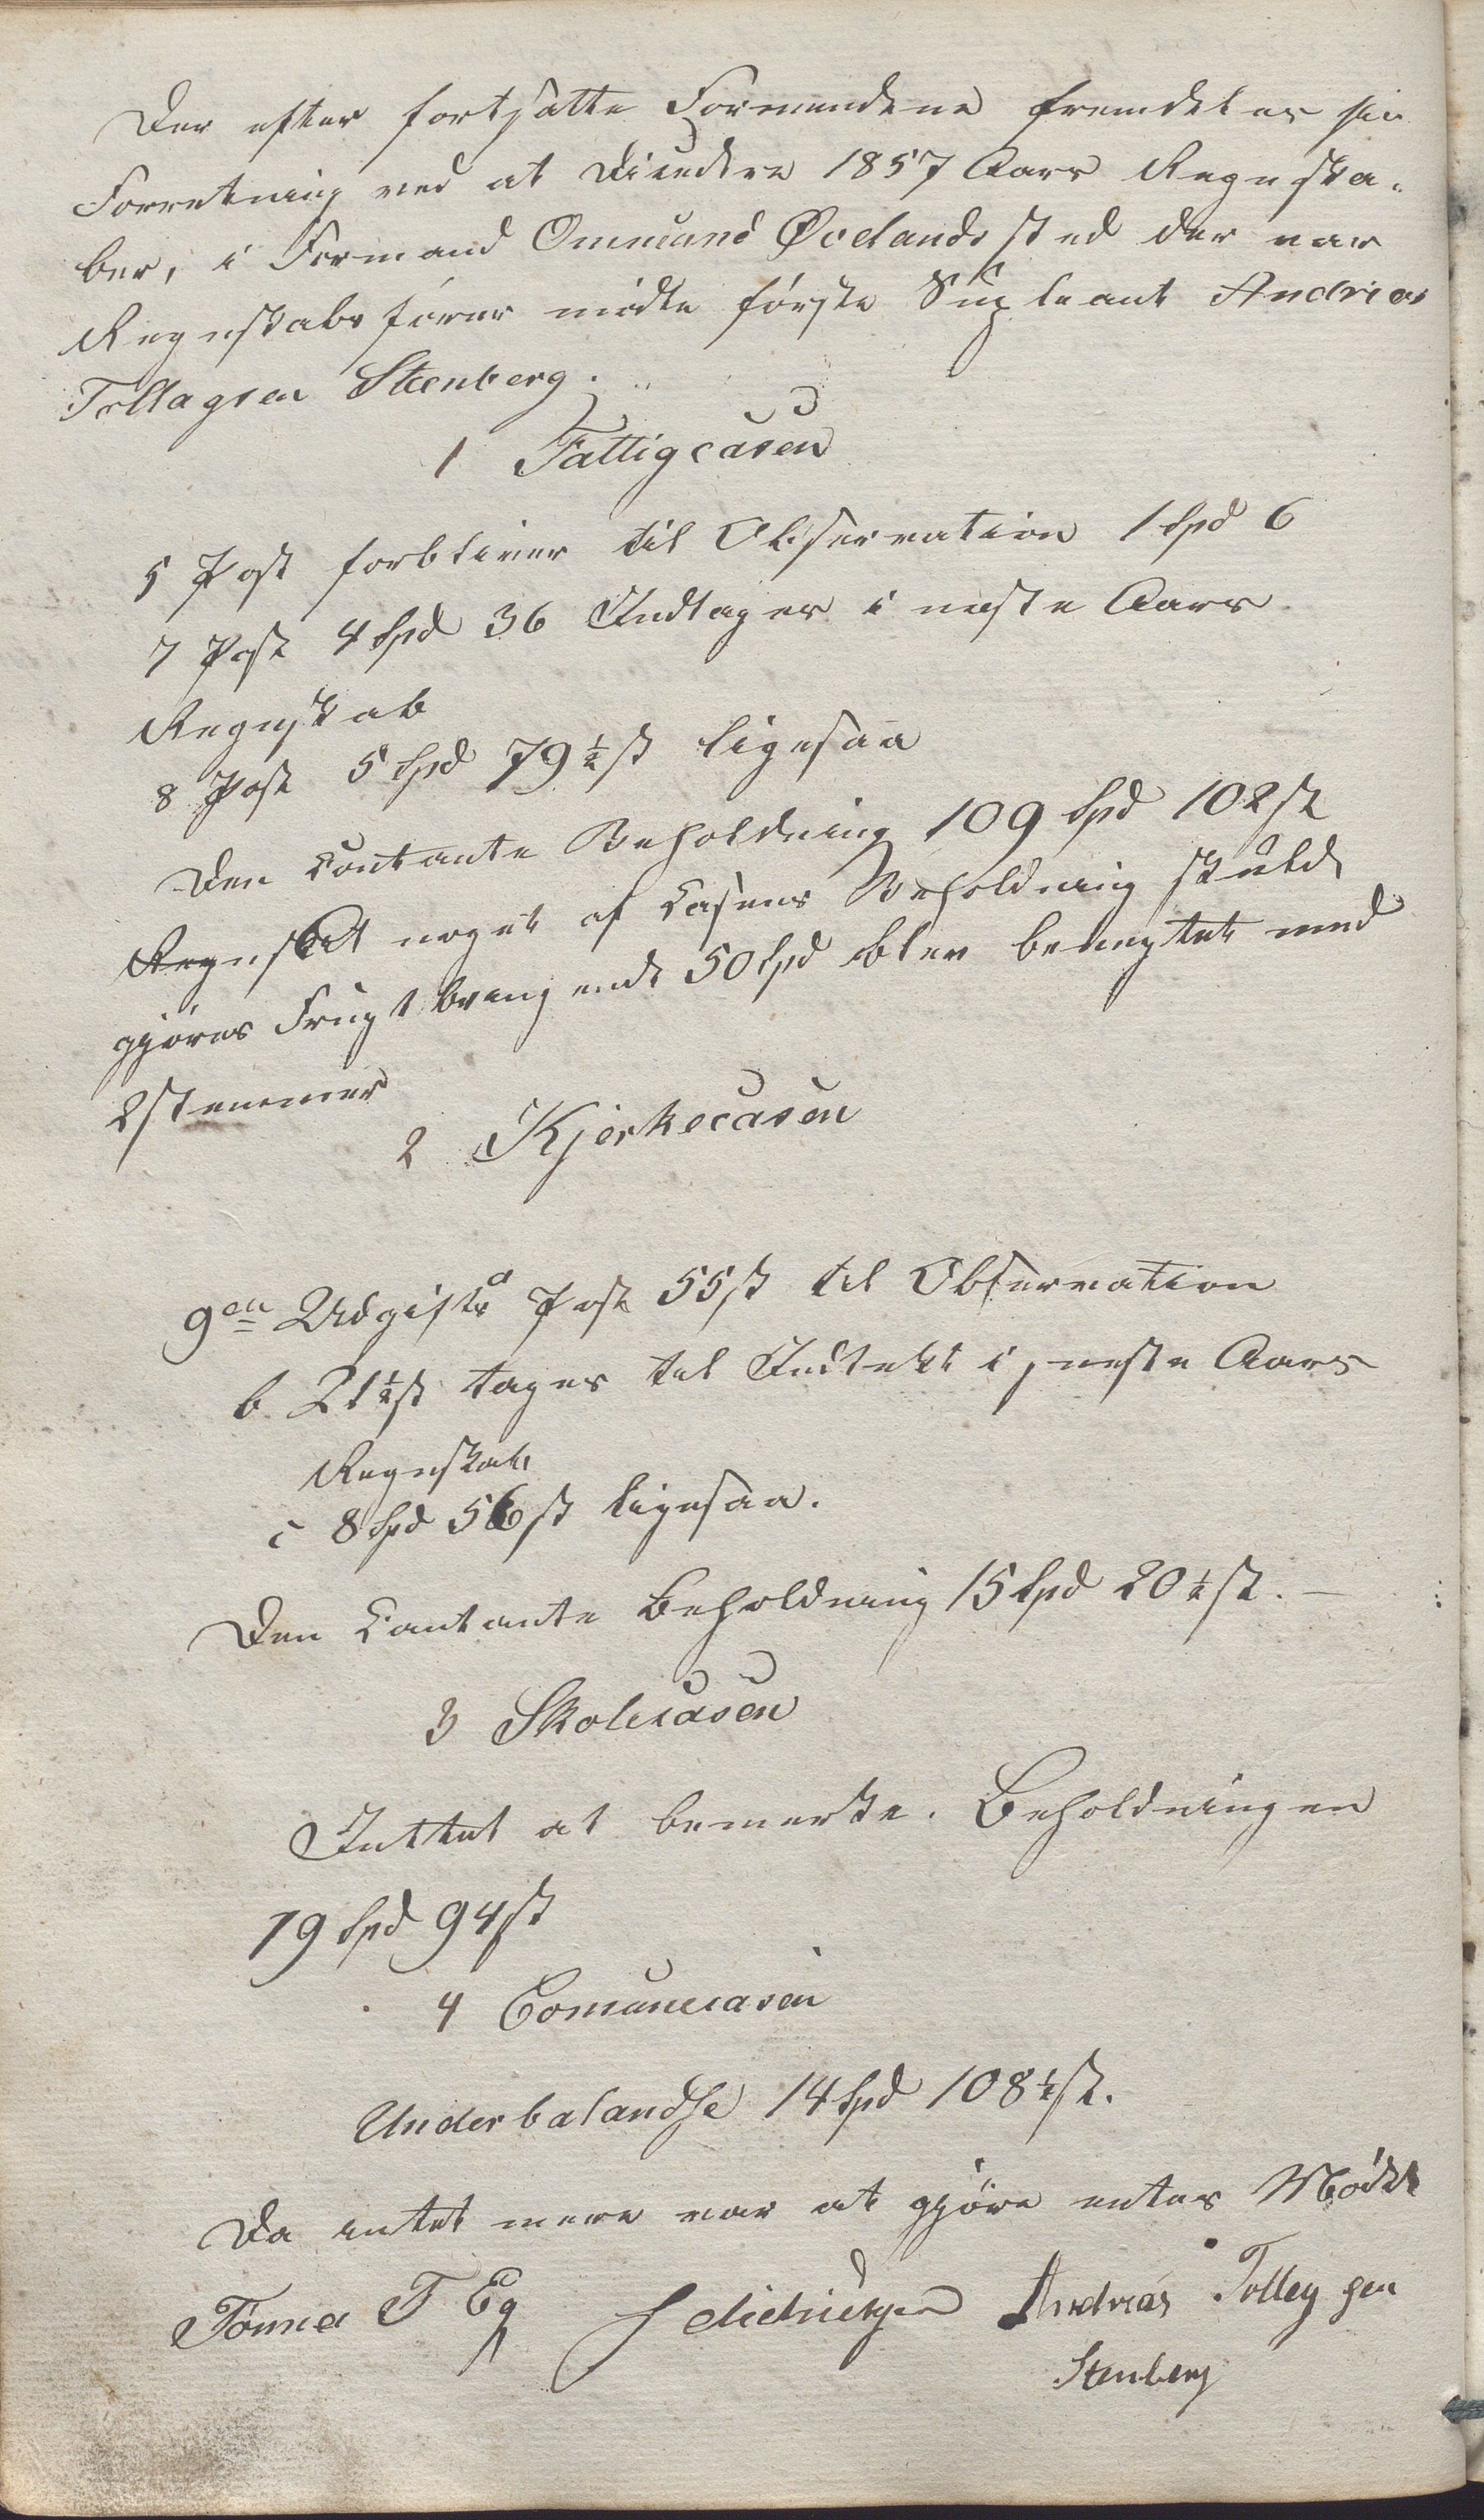 Der efter fortsatte Formendene fremdeles sin
Forretning ved at Disedere 1857 Aars Regnska-
ber, i Formand Ommund Øvelands sted der var
Regnskabsfører mødte første Supleant Andrias
Tollagsen Steenberg.
1 Fattigcasen
5 Post forbliver til Observation 1 Spd 6
7 Post 4 Spd 36 Indtages i neste Aars
Regnskab
8 Post 5 Spd 79½ s ligesaa
Den Contante Beholdning 109 Spd 102 s
noget af Casens Beholdning skulde
gjøres Frugtbringende 50 Spd blev benegtet med
2 stemmer
2 Kjerkecasen
9en Udgifts Post a 55 s til Observation
b 21½ s tages til Indtekt i neste Aars
Regnskab
c 8 Spd 56 s ligesaa.
Den Contante Beholdning 15 Spd 20½ s. —
3 Skolecasen
Inttet at bemerke. Beholdningen
19 Spd 94 s
4 Comunecasen
Underbalandse 14 Spd 108½ s.
Da intet mere var at gjøre entes Mødet
Tønnes T Eg Andreas Tolleg sen
Stenberg